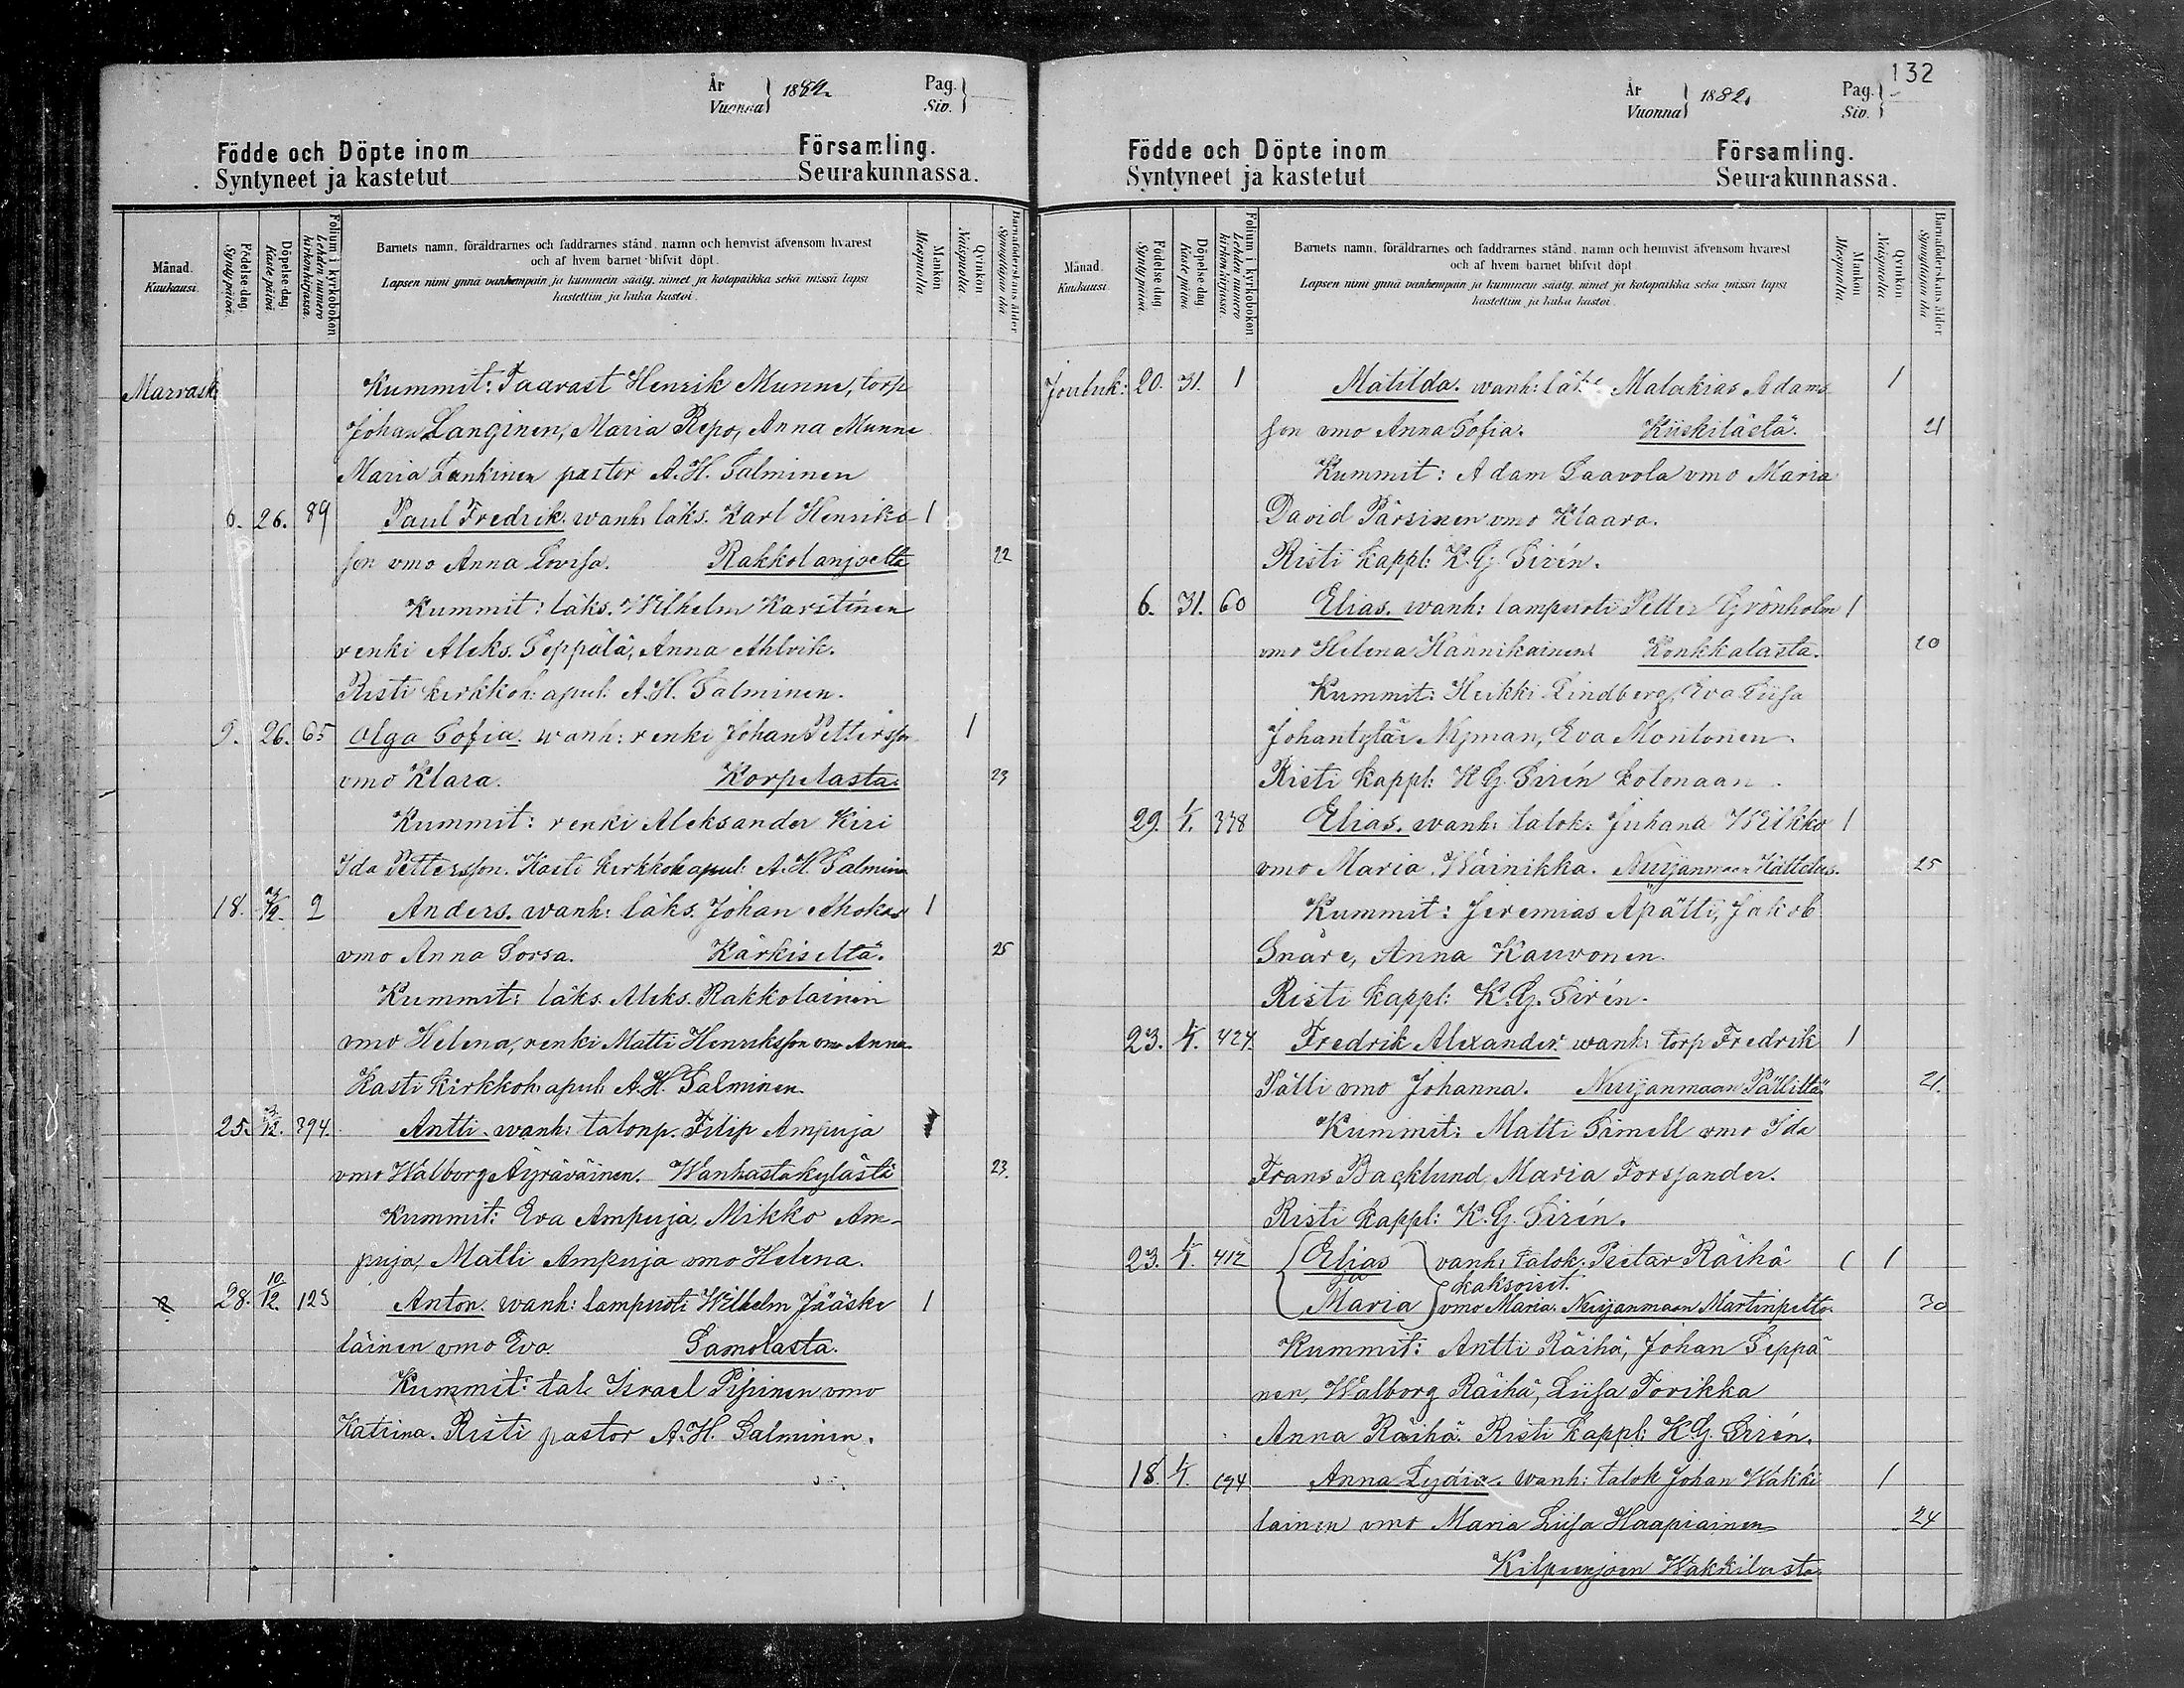 År
Vuonna } 1882.
Pag.
Siv. }
Födde och Döpte inom Församling.
Syntyneet ja kastetut Seurakunnassa.
Månad.
Kuukausi.
Födelse dag.
Synty päivä.
Döpelse dag.
Kaste päivä.
Folium i kyrkoboken
Lehden numero
kirkonkirjassa.
Barnets namn, föräldrarnes och faddrarnes stånd, namn och hemvist äfvensom hvarest
och af hvem barnet blifvit döpt.
Lapsen nimi ynnä vanhempain ja kummein sääty, nimet ja kotopaikka sekä missä lapsi
kastettiin ja kuka kastoi.
Mankön
Miespuolta
Qvinkön
Naispuolta
Barnaföderskans ålder
Synnyttäjän ikä
Marrask: Kummit: Taavast Henrik Munne, torp
Johan Langinen, Maria Repo, Anna Munne
Maria Lankinen pastor A. H. Salminen
6. 26. 89 Paul Fredrik. wanh: läks. Karl Henriks- 1
son vmo Anna Lovisa. Rakkolanjoelta 22
Kummit: läks. Wilhelm Karstinen
renki Aleks. Seppälä, Anna Ahlvik.
Risti kirkkoh: apul: A. H. Salminen.
9. 26. 65 Olga Sofia. wanh: renki Johan Pettersson 1
vmo Klara. Korpelasta. 23
Kummit: renki Aleksander Kiri
Ida Pettersson. Kasti kirkkoh apul: A. H. Salminen
18. 2 Anders. wanh: läks. Johan Ahokas 1
vmo Anna Sorsa. Kärkiseltä. 25
Kummit: läks. Aleks. Rakkolainen
vmo Helena, renki Matti Henriksson vmo Anna
Kasti kirkkoh: apul: A. H. Salminen
25. 3/12. 394. Antti. wanh: talonp. Filip Ampuja 1
vmo Walborg Äyräväinen. Wanhastakylästä 23.
Kummit: Eva Ampuja, Mikko Am-
puja, Matti Ampuja vmo Helena.
28. 10/12. 123 Anton. wanh: lampuoti Wilhelm Jääske 1
läinen vmo Eva Samolasta.
Kummit: tal. Israel Pipinen vmo
Katrina. Risti pastor A. H. Salminen.
132
År
Vuonna } 1882.
Pag.
Siv. }
Födde och Döpte inom Församling.
Syntyneet ja kastetut Seurakunnassa.
Månad.
Kuukausi.
Födelse dag.
Synty päivä.
Döpelse dag.
Kaste päivä.
Folium i kyrkoboken
Lehden numero
kirkonkirjassa.
Barnets namn, föräldrarnes och faddrarnes stånd, namn och hemvist äfvensom hvarest
och af hvem barnet blifvit döpt.
Lapsen nimi ynnä vanhempain ja kummein sääty, nimet ja kotopaikka sekä missä lapsi
kastettiin ja kuka kastoi.
Mankön
Miespuolta
Qvinkön
Naispuolta
Barnaföderskans ålder
Synnyttäjän ikä
Jouluk: 20. 31. 1 Matilda. wanh: läks. Malakias Adams 1
son vmo Anna Sofia. Kiiskilästä. 21
Kummit: Adam Saavola vmo Maria
David Pärsinen vmo Klaara.
Risti kappl: K. G. Sirén.
6. 31. 60 Elias. wanh: lampuoti Petter Grönholm 1
vmo Helena Hännikäinen Konkkalasta. 20
Kummit: Heikki Lindberg, Eva Liisa
Johantytär Nyman, Eva Montonen.
Risti kappl: K G. Sirén kotonaan.
29. 4. 338 Elias. wanh: talok: Juhana Wilkko 1
vmo Maria Wäinikka. Nuijanmaan Hättelus. 25
Kummit: Jeremias Apätti, Jakob
Snäre, Anna Kauvonen.
Risti kappl: K. G. Sirén.
23. 4. 424. Fredrik Alexander wanh: torp Fredrik 1
Pätti vmo Johanna. Nuijanmaan Pällittä 21.
Kummit: Matti Simell vmo Ida
Frans Backlund, Maria Forsjander.
Risti kappl: K. G. Sirén.
23. 4. 412 Elias vanh: talok: Peetar Räihä 1 1
ja kaksoiset.
Maria vmo Maria. Nuijanmaan Martinpelto. 30
Kummit: Antti Räihä, Johan Seppä
nen, Walborg Räihä, Liisa Torikka
Anna Räihä. Risti kappl: K. G. Sirén.
18. 4. 194 Anna Lydia. wanh: talok Johan Wäkki 1
lainen vmo Maria Liisa Haapiainen 24
Kilpeenjoen Wakkilasta.